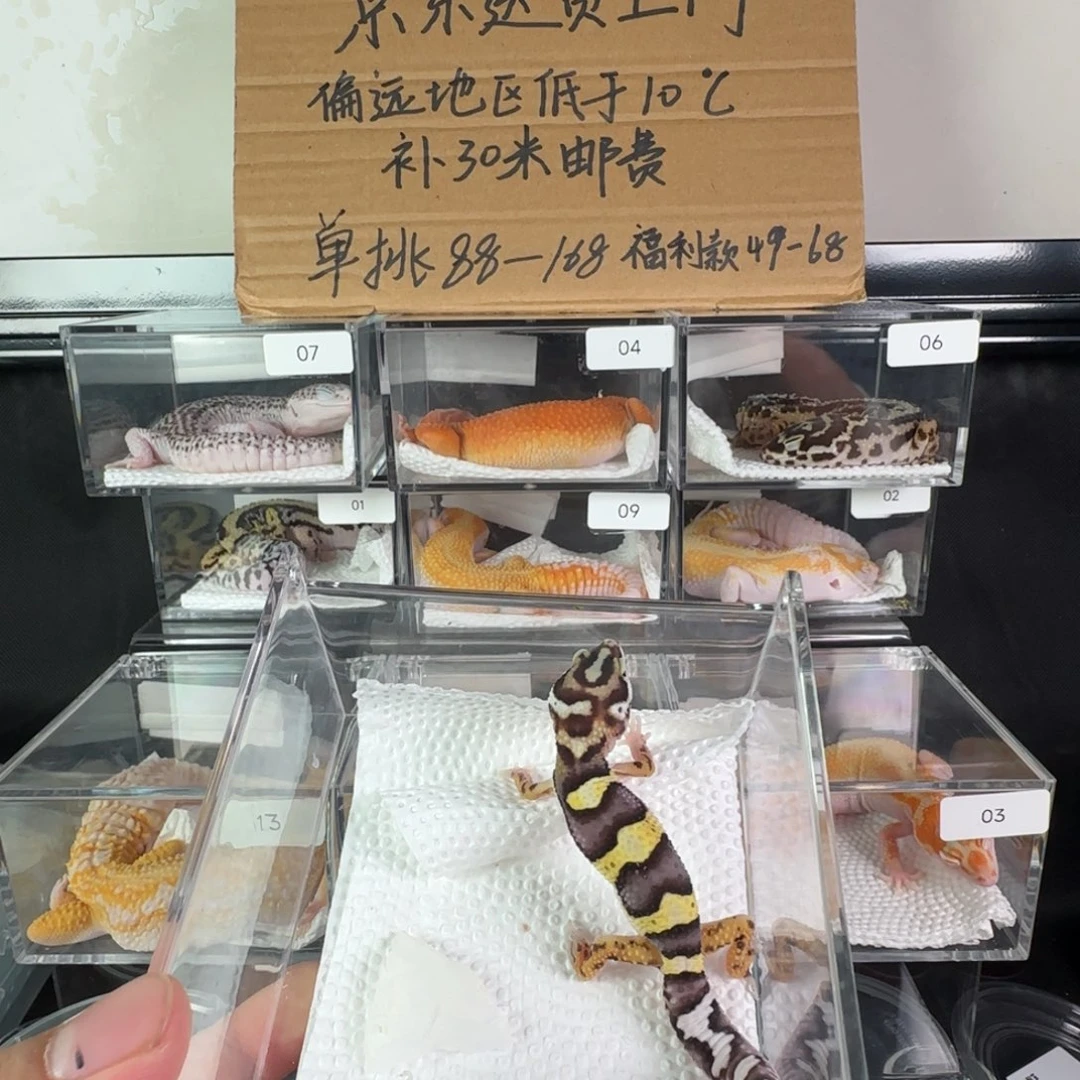 京东达员上门
偏远地区低于10℃
补30米邮费
单挑88-168 福利款49-68
07
04
06
01
09
02
13
03